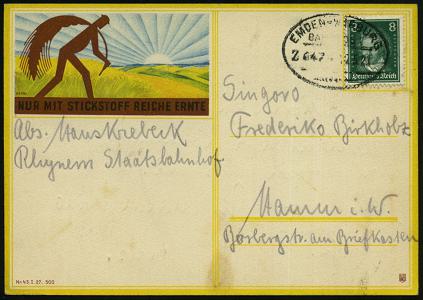 NUR MIT STICKSTOFF REICHE ERNTE
Abs. Hans Krebeck
Rhynern Staatsbahnhof
EMDEN-
BA
Z 647
8
Deutsches Reich
Sinjoro
Frederiko Birkholz
Hamm i. W.
Borbergstr. am Briefkasten